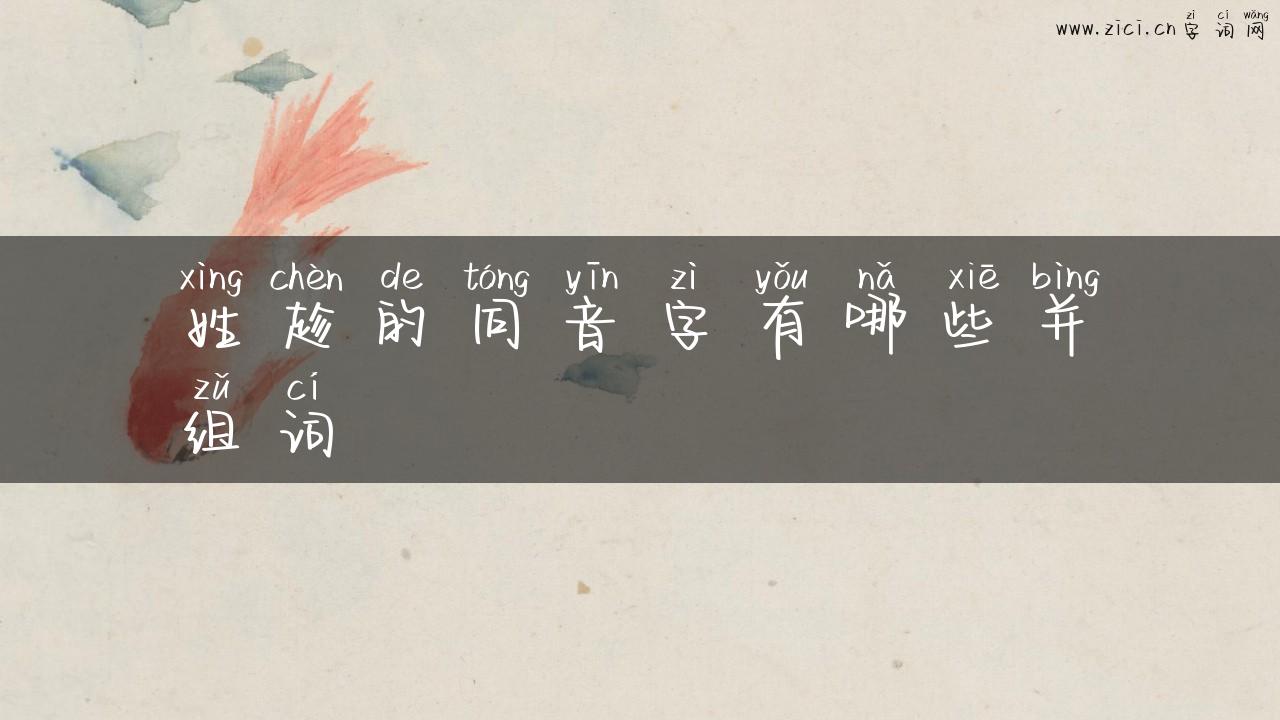 zì cí wǎng
www.zici.cn 字词网
xìng chèn de tóng yīn zì yǒu nǎ xiē bìng
姓趁的同音字有哪些并
zǔ cí
组词